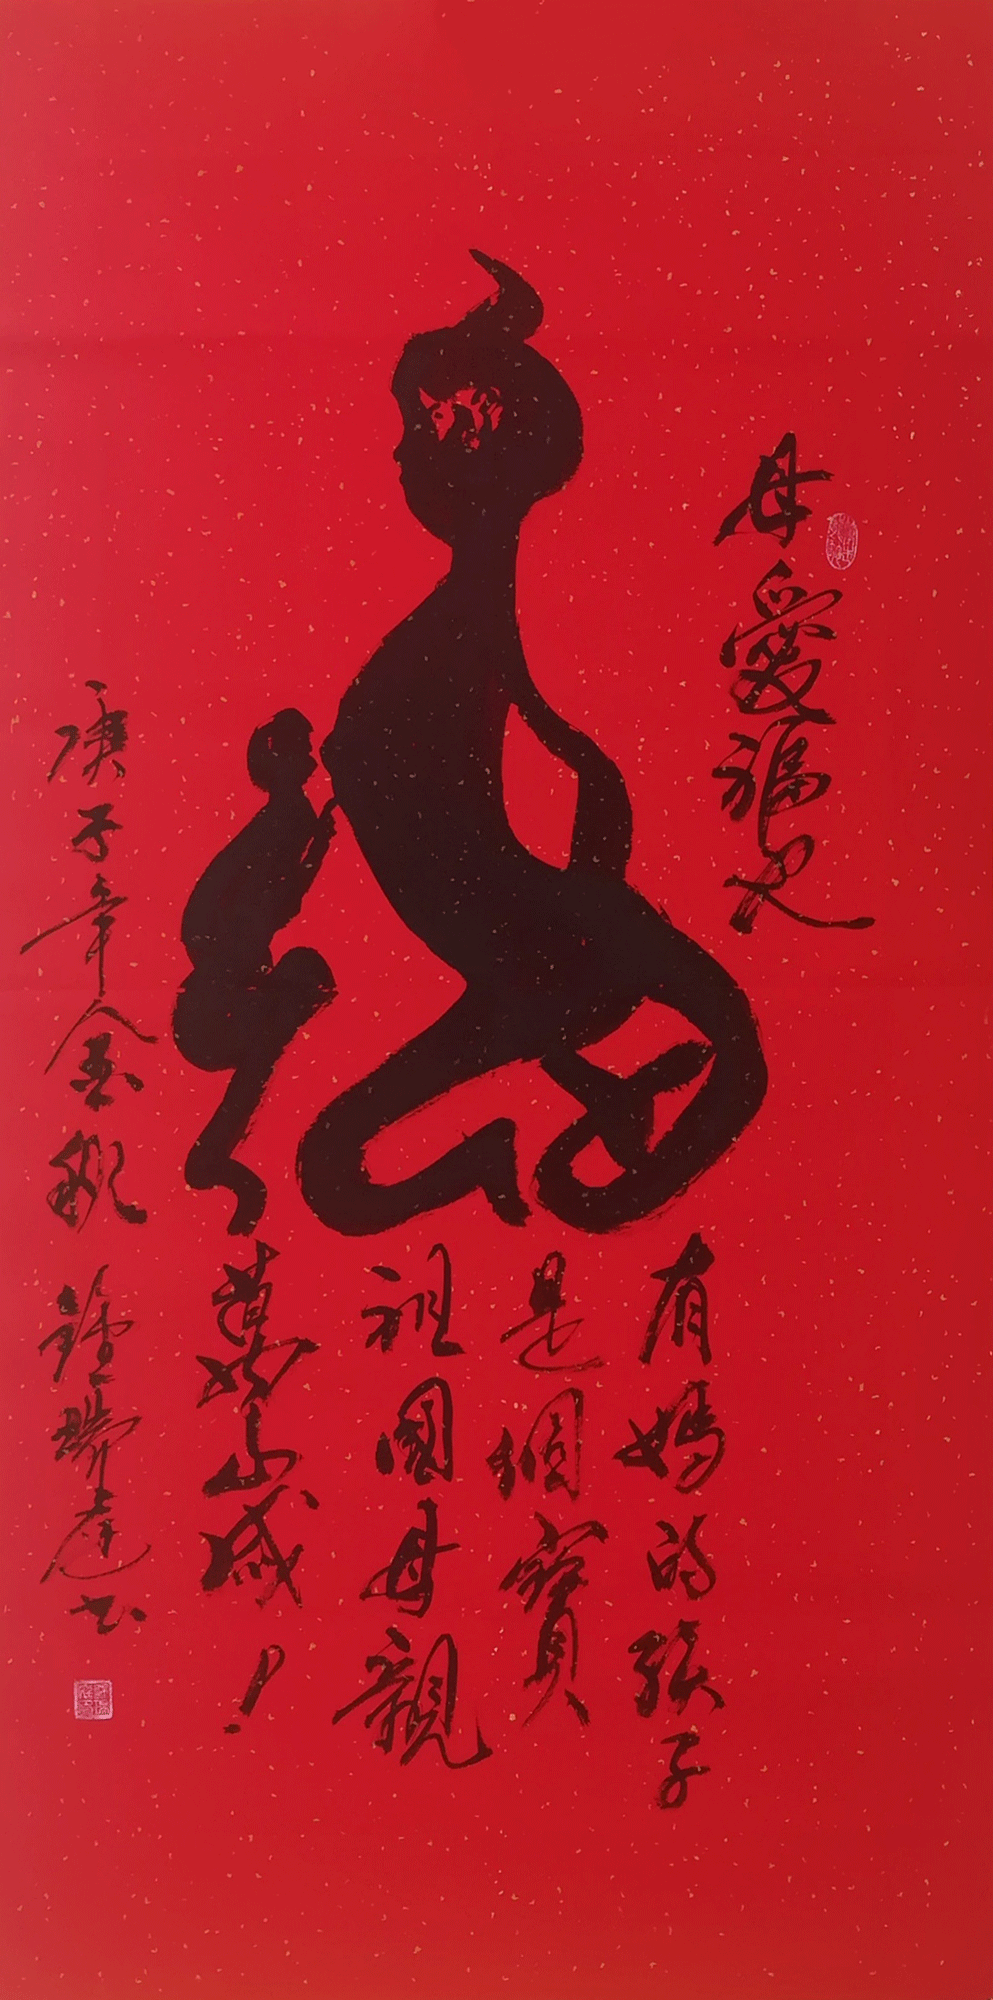 母愛福也
有媽的孩子
是個寶
祖國母親
萬嵗！
庚子年金秋 鐘瑞達书